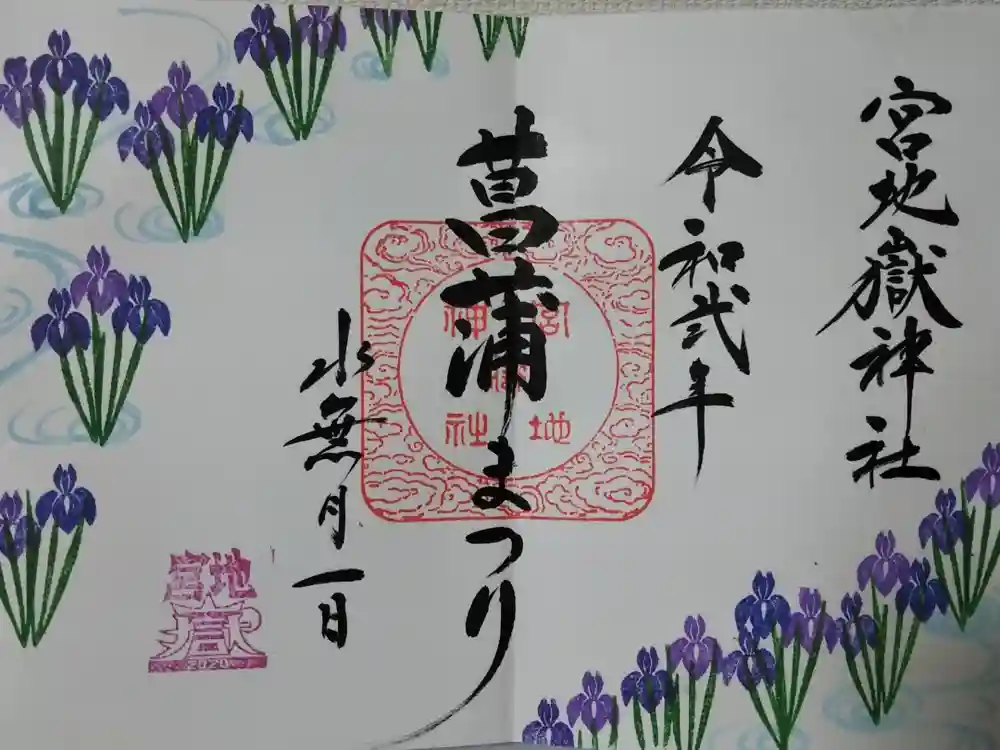 宮地嶽神社
令和弐年
菖蒲まつり
水無月一日
宮地嶽神社
宮地
嶽
2020